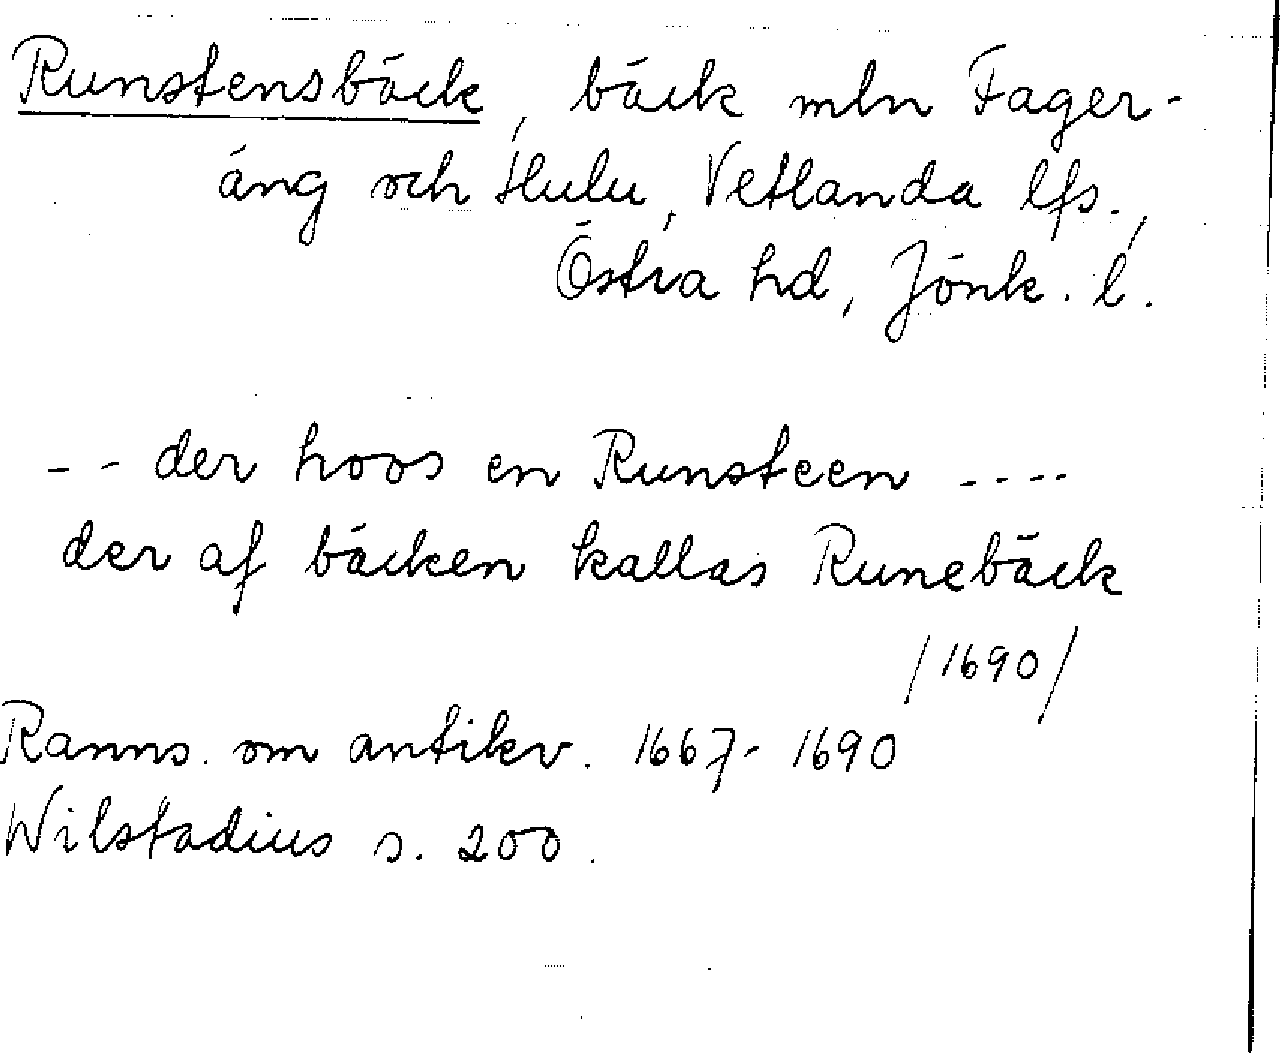 Runstensbäck, bäck mln Fager-
äng och Hulu, Vetlanda lfs.,
Östra hd, Jönk. l.
-- der hoos en Runsteen ----
der af bäcken kallas Runebäck
/1690/
Ranns. om antikv. 1667-1690
Wilstadius s. 200.